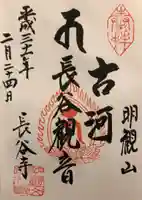 明観山
古河
長谷観音
長谷寺
平成三十一年
二月二十四日